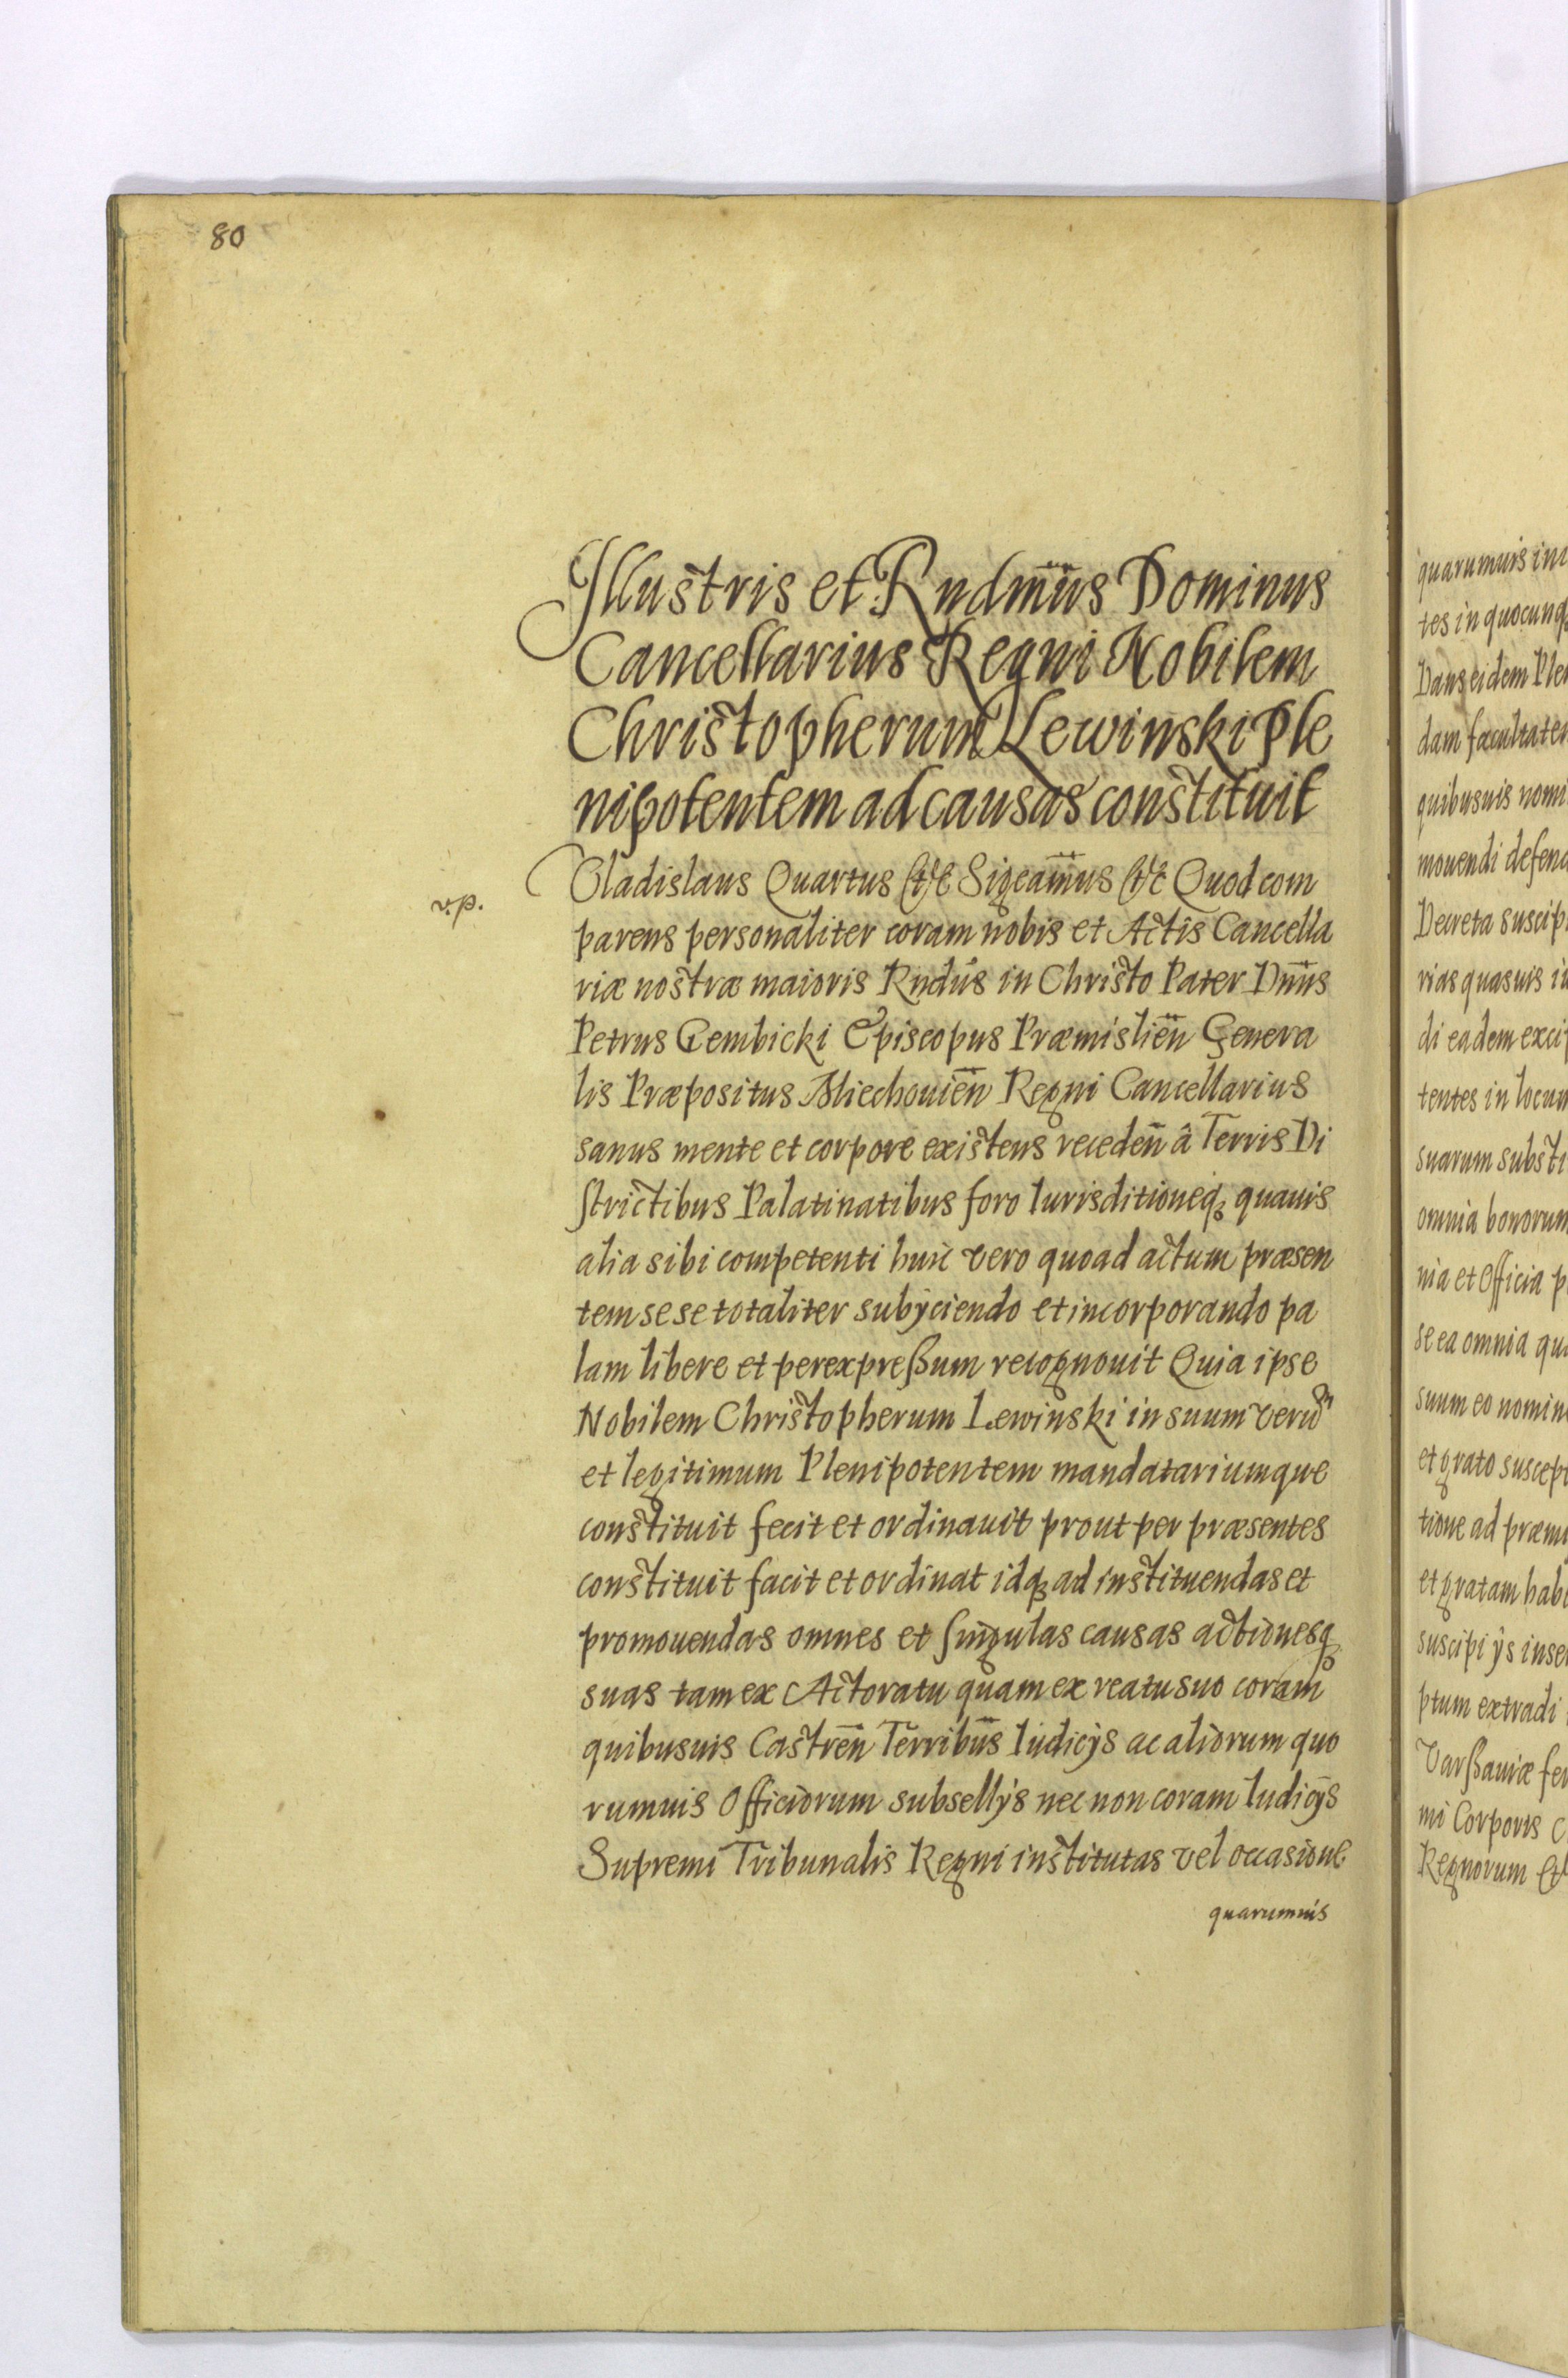 80
Illustris et Rndm̃us Dominus
Cancellarius Regni Nobilem
Christopherum Lewinski Ple
nipotentem ad causas constituit
Vladislaus Quartus &c Sigeam̃us &c Quod com
parens personaliter coram nobis et Actis Cancella
riæ nostræ maioris Rndus in Christo Pater Dnũs
Petrus Gembicki Episcopus Præmislieñ Genera
lis Præpositus Miechouieñ Regni Cancellarius
sanus mente et corpore existens recedeñ â Terris Di
strictibus Palatinatibus foro Iurisditioneq; quauis
alia sibi competenti huic vero quoad actum præsen
tem sese totaliter subÿciendo et incorporando pa
lam libere et per expreßum recognouit Quia ipse
Nobilem Christopherum Lewinski in suum verum
et legitimum Plenipotentem mandatariumque
constituit fecit et ordinauit prout per præsentes
constituit facit et ordinat idq; ad instituendas et
promouendas omnes et singulas causas actionesq;
suas tam ex Actoratu quam ex reatu suo coram
quibusuis Castreñ Terribus̃ Iudicÿs ac aliorum quo
rumuis Officiorum subsellÿs nec non coram Iudicÿs
Supremi Tribunalis Regni institutas vel occasione
quarumuis
quarumuis in
tes in quocunq;
Dans eidem Ple
dam facultatem
quibusuis nomi
mouendi defen
Decreta suscip
rias quasuis i
di eadem exci
tentes in locum
suarum substi
omnia bonorum
nia et Officia p
se ea omnia qu
suum eo nomin
et grato suscep
tione ad præm
et gratam hab
suscipi ÿs inse
ptum extradi
Varßauiæ fe
mi Corporis C
Regnorum &